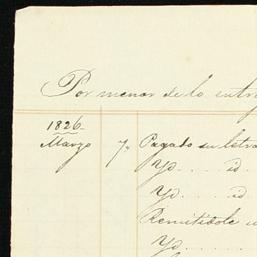 Por menor de lo entr
1826.
Marzo 7 Pagado su letra
Yd. . . . id
Yd. . . . id
Remitidole
Yd. . . . . .